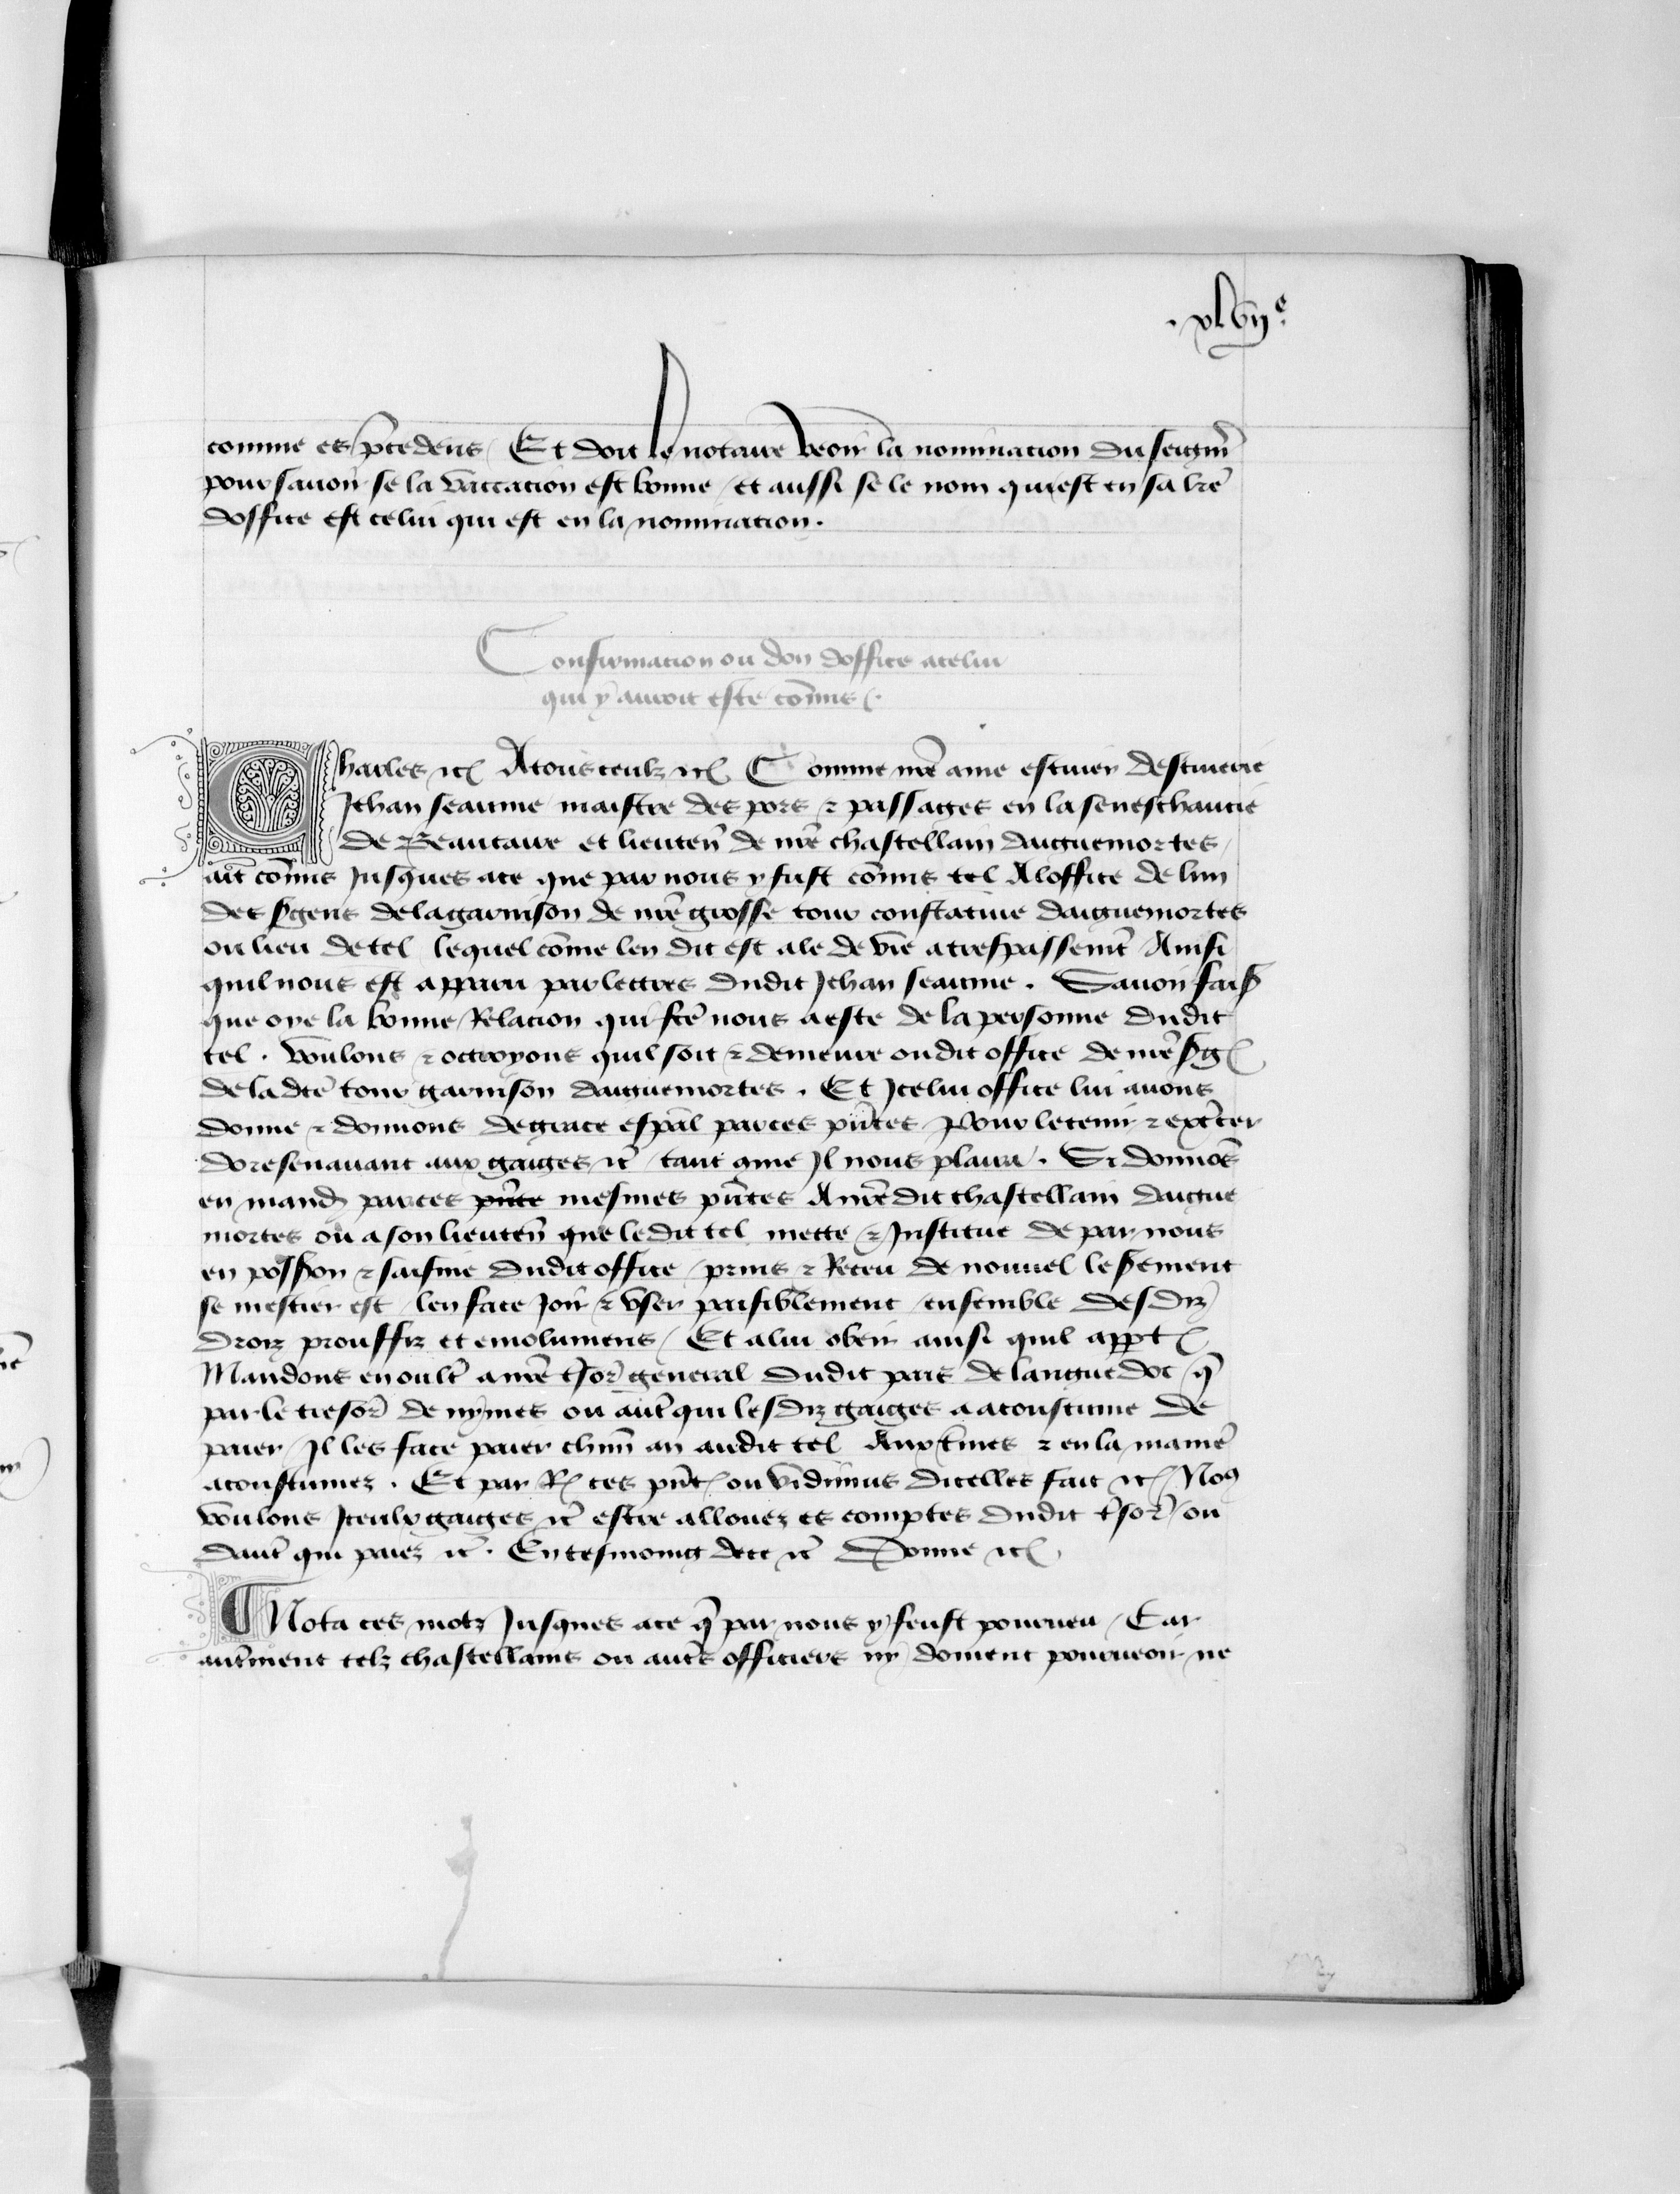 .xlvije.
comme es p̃cedens / Et doit le notaire veoir la nominacion du seigñr
pour sauoir se la vaccacion est bonne / et aussi se le nom qui est en sa lr̃e
doffice est celui qui est en la nominacion.
Confirmacion ou don doffice a celui
qui y auroit este com̃is.
Charles etc̃ A tous ceulx etc̃ Comme nr̃e ame escuier descuierie
Jehan seaume maistre des pors ⁊ passages en la seneschaucie
de Beaucaire et lieuteñ de nr̃e chastellain daiguemortes /
ait com̃is Jusques a ce que par nous y fust com̃is tel A loffice de lun
des s̃gens de la garnison de nr̃e grosse tour constatine daiguemortes
ou lieu de tel lequel com̃e len dit est ale de vie a trespassem̃t Ainsi
quil nous est apparu par lettres dudit Jehan seaume. Sauoir fais̃
que oye la bonne Relacion qui fc̃e nous a este de la personne dudit
tel. voulons ⁊ octroyons quil soit ⁊ demeure oudit office de nr̃e s̃g̃
de la dc̃e tour garnison daiguemortes. Et Jcelui office lui auons
donne ⁊ donnons de grace esp̃al par ces pñtes Pour le tenir ⁊ exc̃er
doresenauant aux gaiges etc̃ tant que Jl nous plaira. Si donnõs
en mand̃ par ces pñte mesmes pñtes A nr̃e dit chastellain daigue
mortes ou a son lieuteñ que le dit tel mette ⁊ Jnstitue de par nous
en poss̃ion ⁊ saisine dudit office / prins ⁊ Receu de nouuel le s̃ement
se mestier est / len face Joir ⁊ vser paisiblement / ensemble desdiz
droiz prouffiz et emolumens / Et a lui obeir ainsi quil appt̃
Mandons en oult̃ a nr̃e t̃sor̃ general dudit pais de languedoc / q̃
par le tresor̃ de nymes ou aut̃ qui lesdiz gaiges a acoustume de
paier / Jl les face paier chũn an audit tel Aux t̃mes ⁊ en la manier̃
acoustumez. Et par R̃ ces pñt̃ ou vidimus dicelles fait etc̃ Noꝯ
voulons Jceulx gaiges etc̃ estre allouez es comptes dudit t̃sor̃ / ou
daut̃ qui paiez etc̃. En tesmoing de ce etc̃ Donne etc̃
¶ Nota ces motz Jusques a ce q̃ par nous y feust pourueu / Car
aut̃ment telz chastellains ou aut̃s officiers ny doiuent pourueoir ne